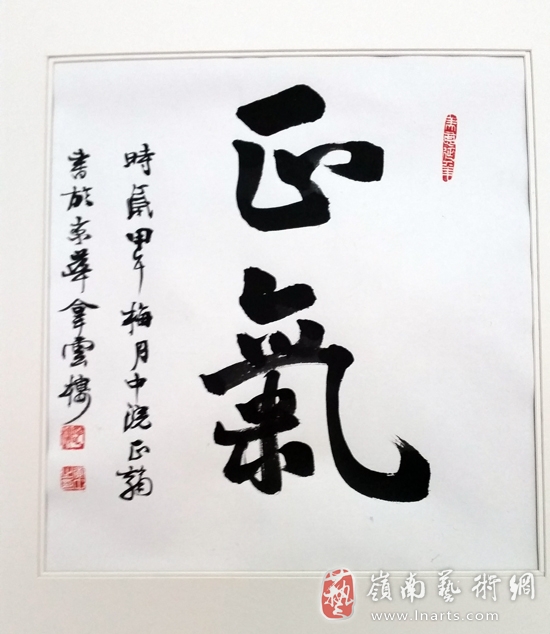 正氣
時歲甲午梅月中浣正翰
書於京華拿雲樓
嶺南藝術網
www.lnarts.com